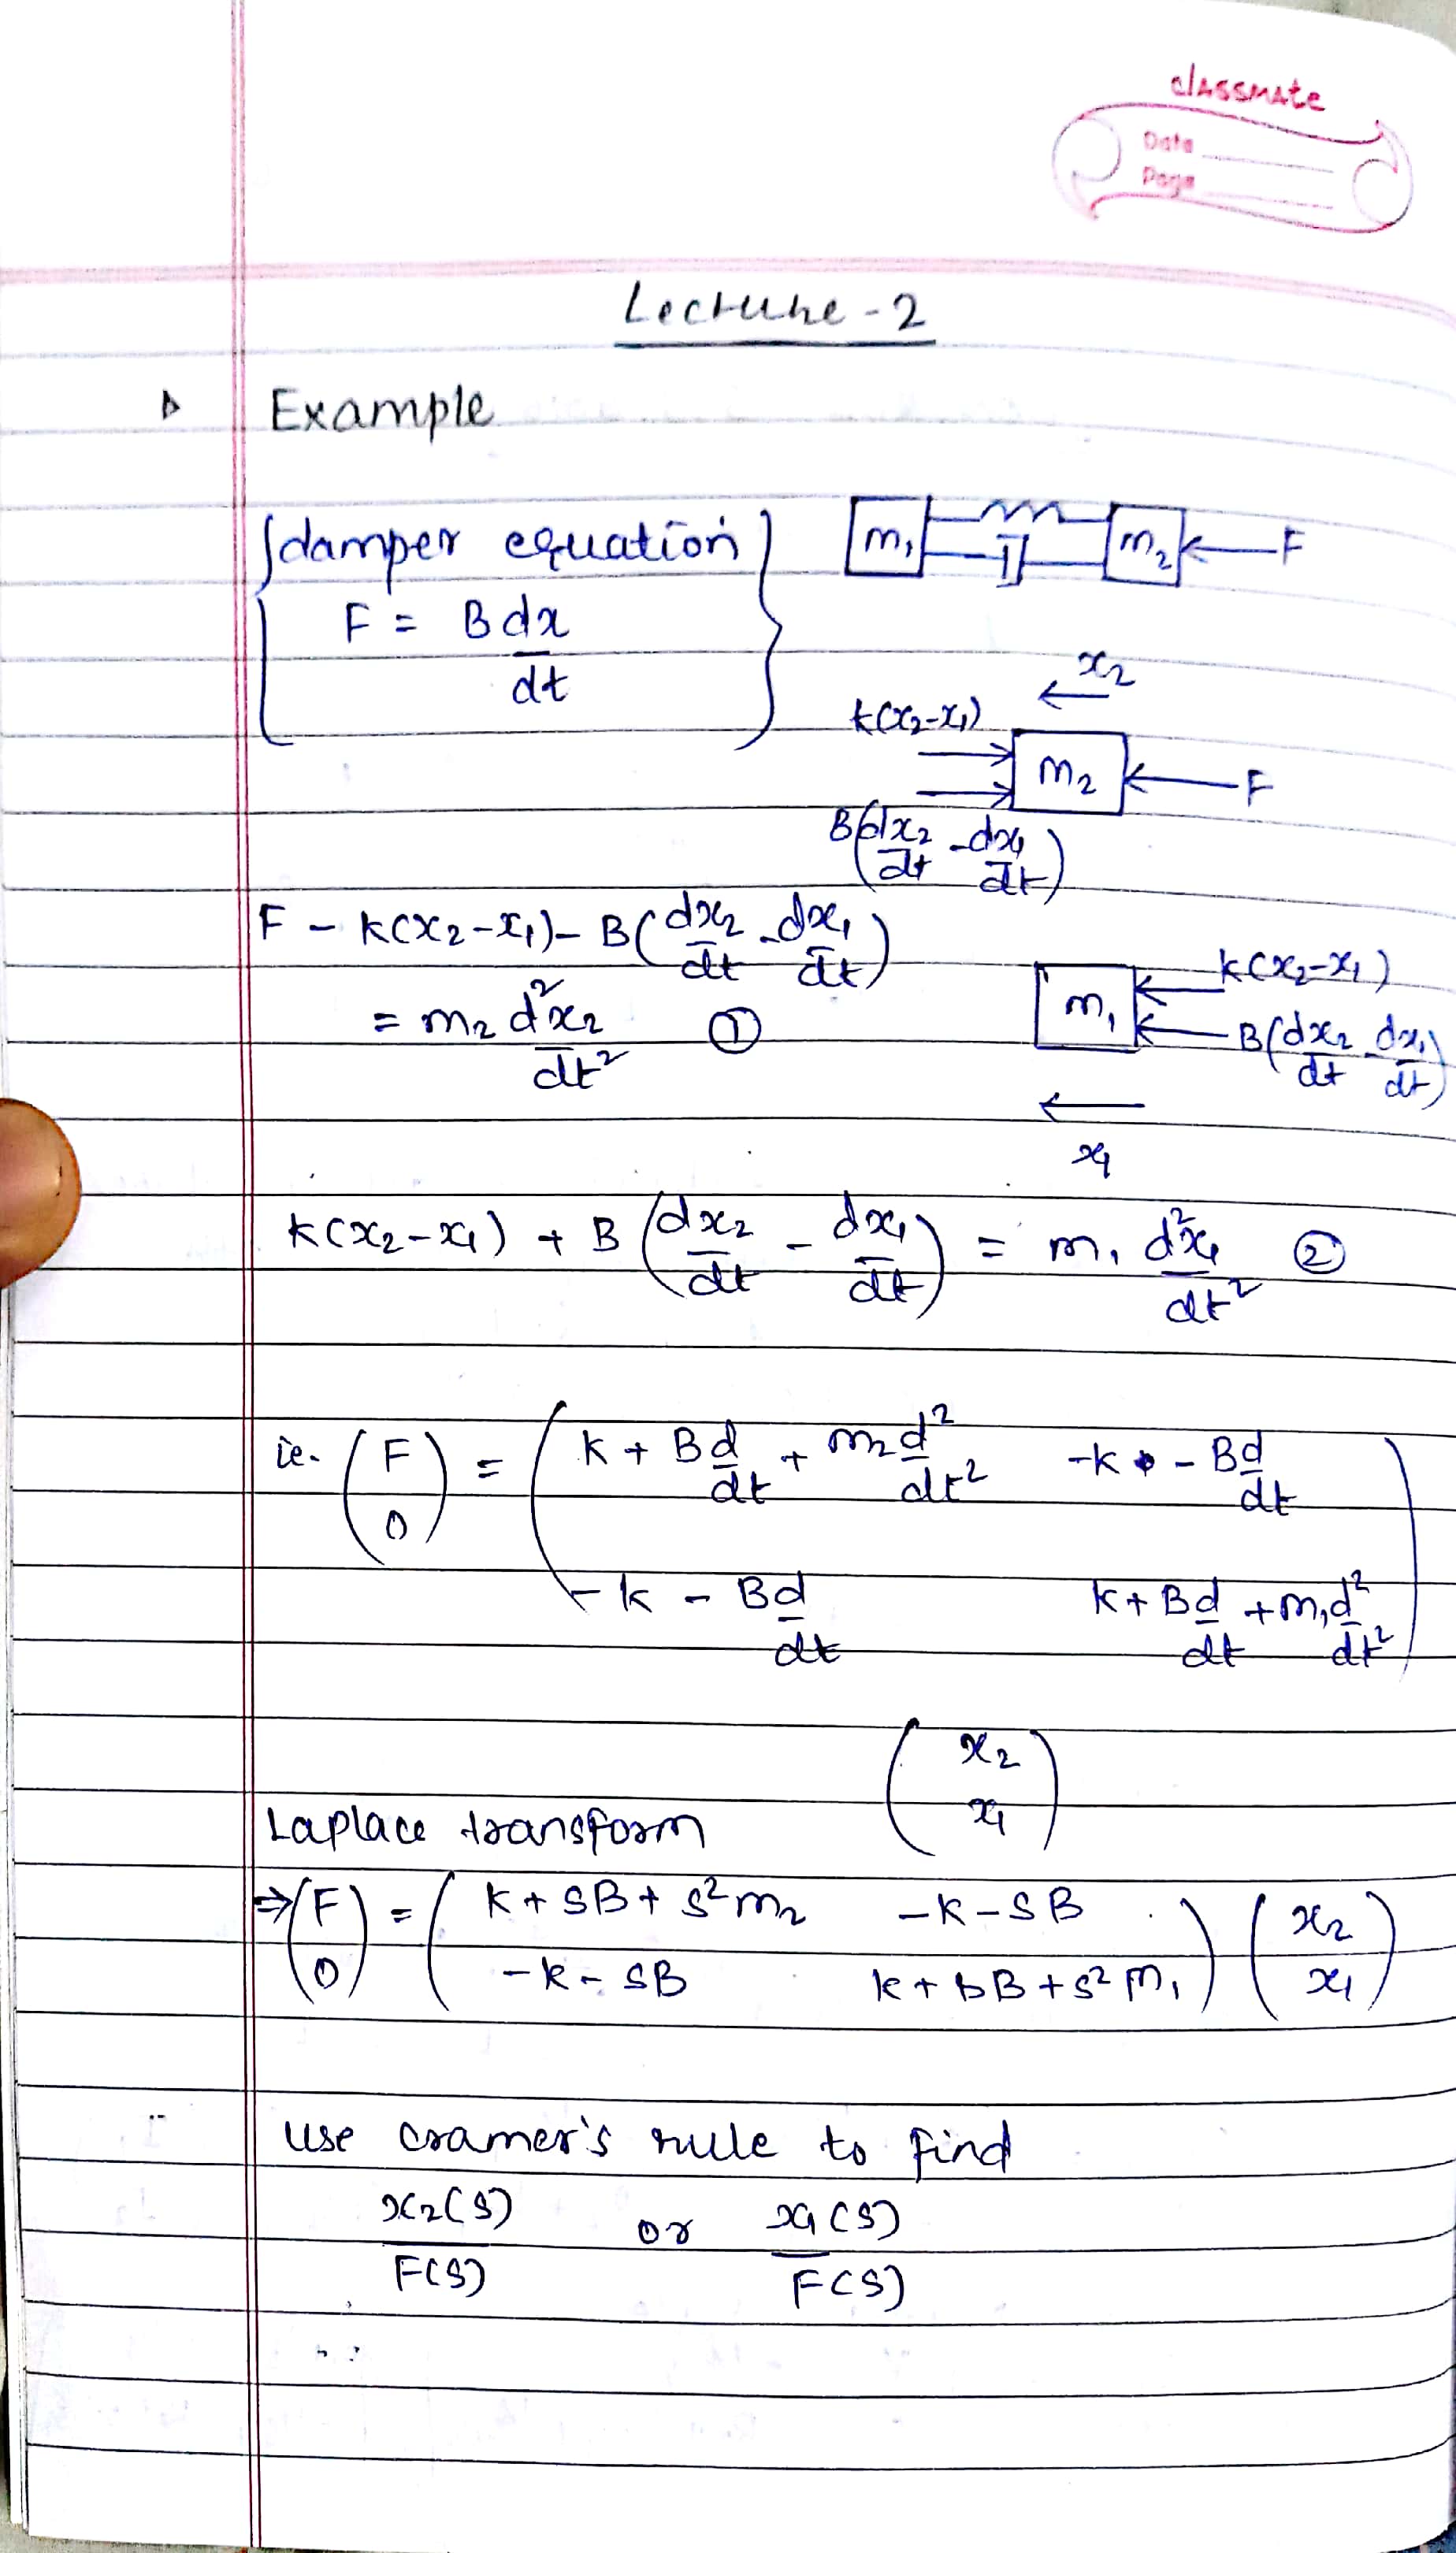 classmate
Date
Page
Lecture - 2
Example
{damper equation}
F = B dx/dt
m₁ m₂ F
x₂
k(x₂-x₁)
m₂ F
B(dx₂/dt - dx₁/dt)
F - k(x₂-x₁) - B(dx₂/dt - dx₁/dt)
= m₂ d²x₂/dt² ①
m₁ k(x₂-x₁)
B(dx₂/dt - dx₁/dt)
x₁
k(x₂-x₁) + B(dx₂/dt - dx₁/dt) = m₁ d²x₁/dt² ②
ie. (F 0) = (k + B d/dt + m₂ d²/dt² -k - B d/dt
-k - B d/dt k + B d/dt + m₁ d²/dt²)
(x₂ x₁)
Laplace transform
⇒ (F) = (k + SB + s²m₂ -k-SB) (x₂)
(0) (-k - SB k + sB + s²m₁) (x₁)
use cramer's rule to find
x₂(s)/F(s) or x₁(s)/F(s)